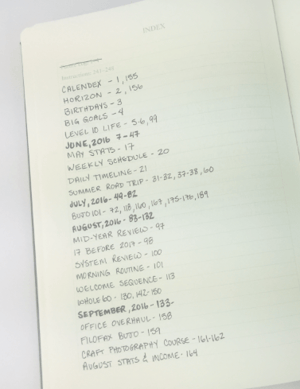 INDEX
CALENDEX - 1, 155
HORIZON - 2, 156
BIRTHDAYS - 3
BIG GOALS - 4
LEVEL 10 LIFE - 5-6, 99
JUNE, 2016 7-47
MAY STATS - 17
WEEKLY SCHEDULE - 20
DAILY TIMELINE - 21
SUMMER ROAD TRIP - 31-32, 37-38, 60
JULY, 2016 - 49-82
BUJO 101 - 72, 118, 160, 167, 175-176, 189
AUGUST, 2016 - 83-132
MID-YEAR REVIEW - 97
17 BEFORE 2017 - 98
SYSTEM REVIEW - 100
MORNING ROUTINE - 101
WELCOME SEQUENCE - 113
WHOLE 60 - 130, 142-150
SEPTEMBER, 2016 - 133-
OFFICE OVERHAUL - 158
FILOFAX BUJO - 159
CRAFT PHOTOGRAPHY COURSE - 161-162
AUGUST STATS & INCOME - 164